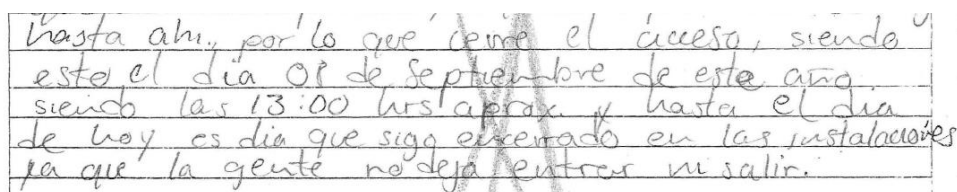 hasta ahi., por lo que cerre el acceso, siendo
este el dia 08 de Septiembre de este año
siendo las 13:00 hrs aprox. y hasta el dia
de hoy es dia que sigo encerrado en las instalaciones
ya que la gente no deja entrar ni salir.